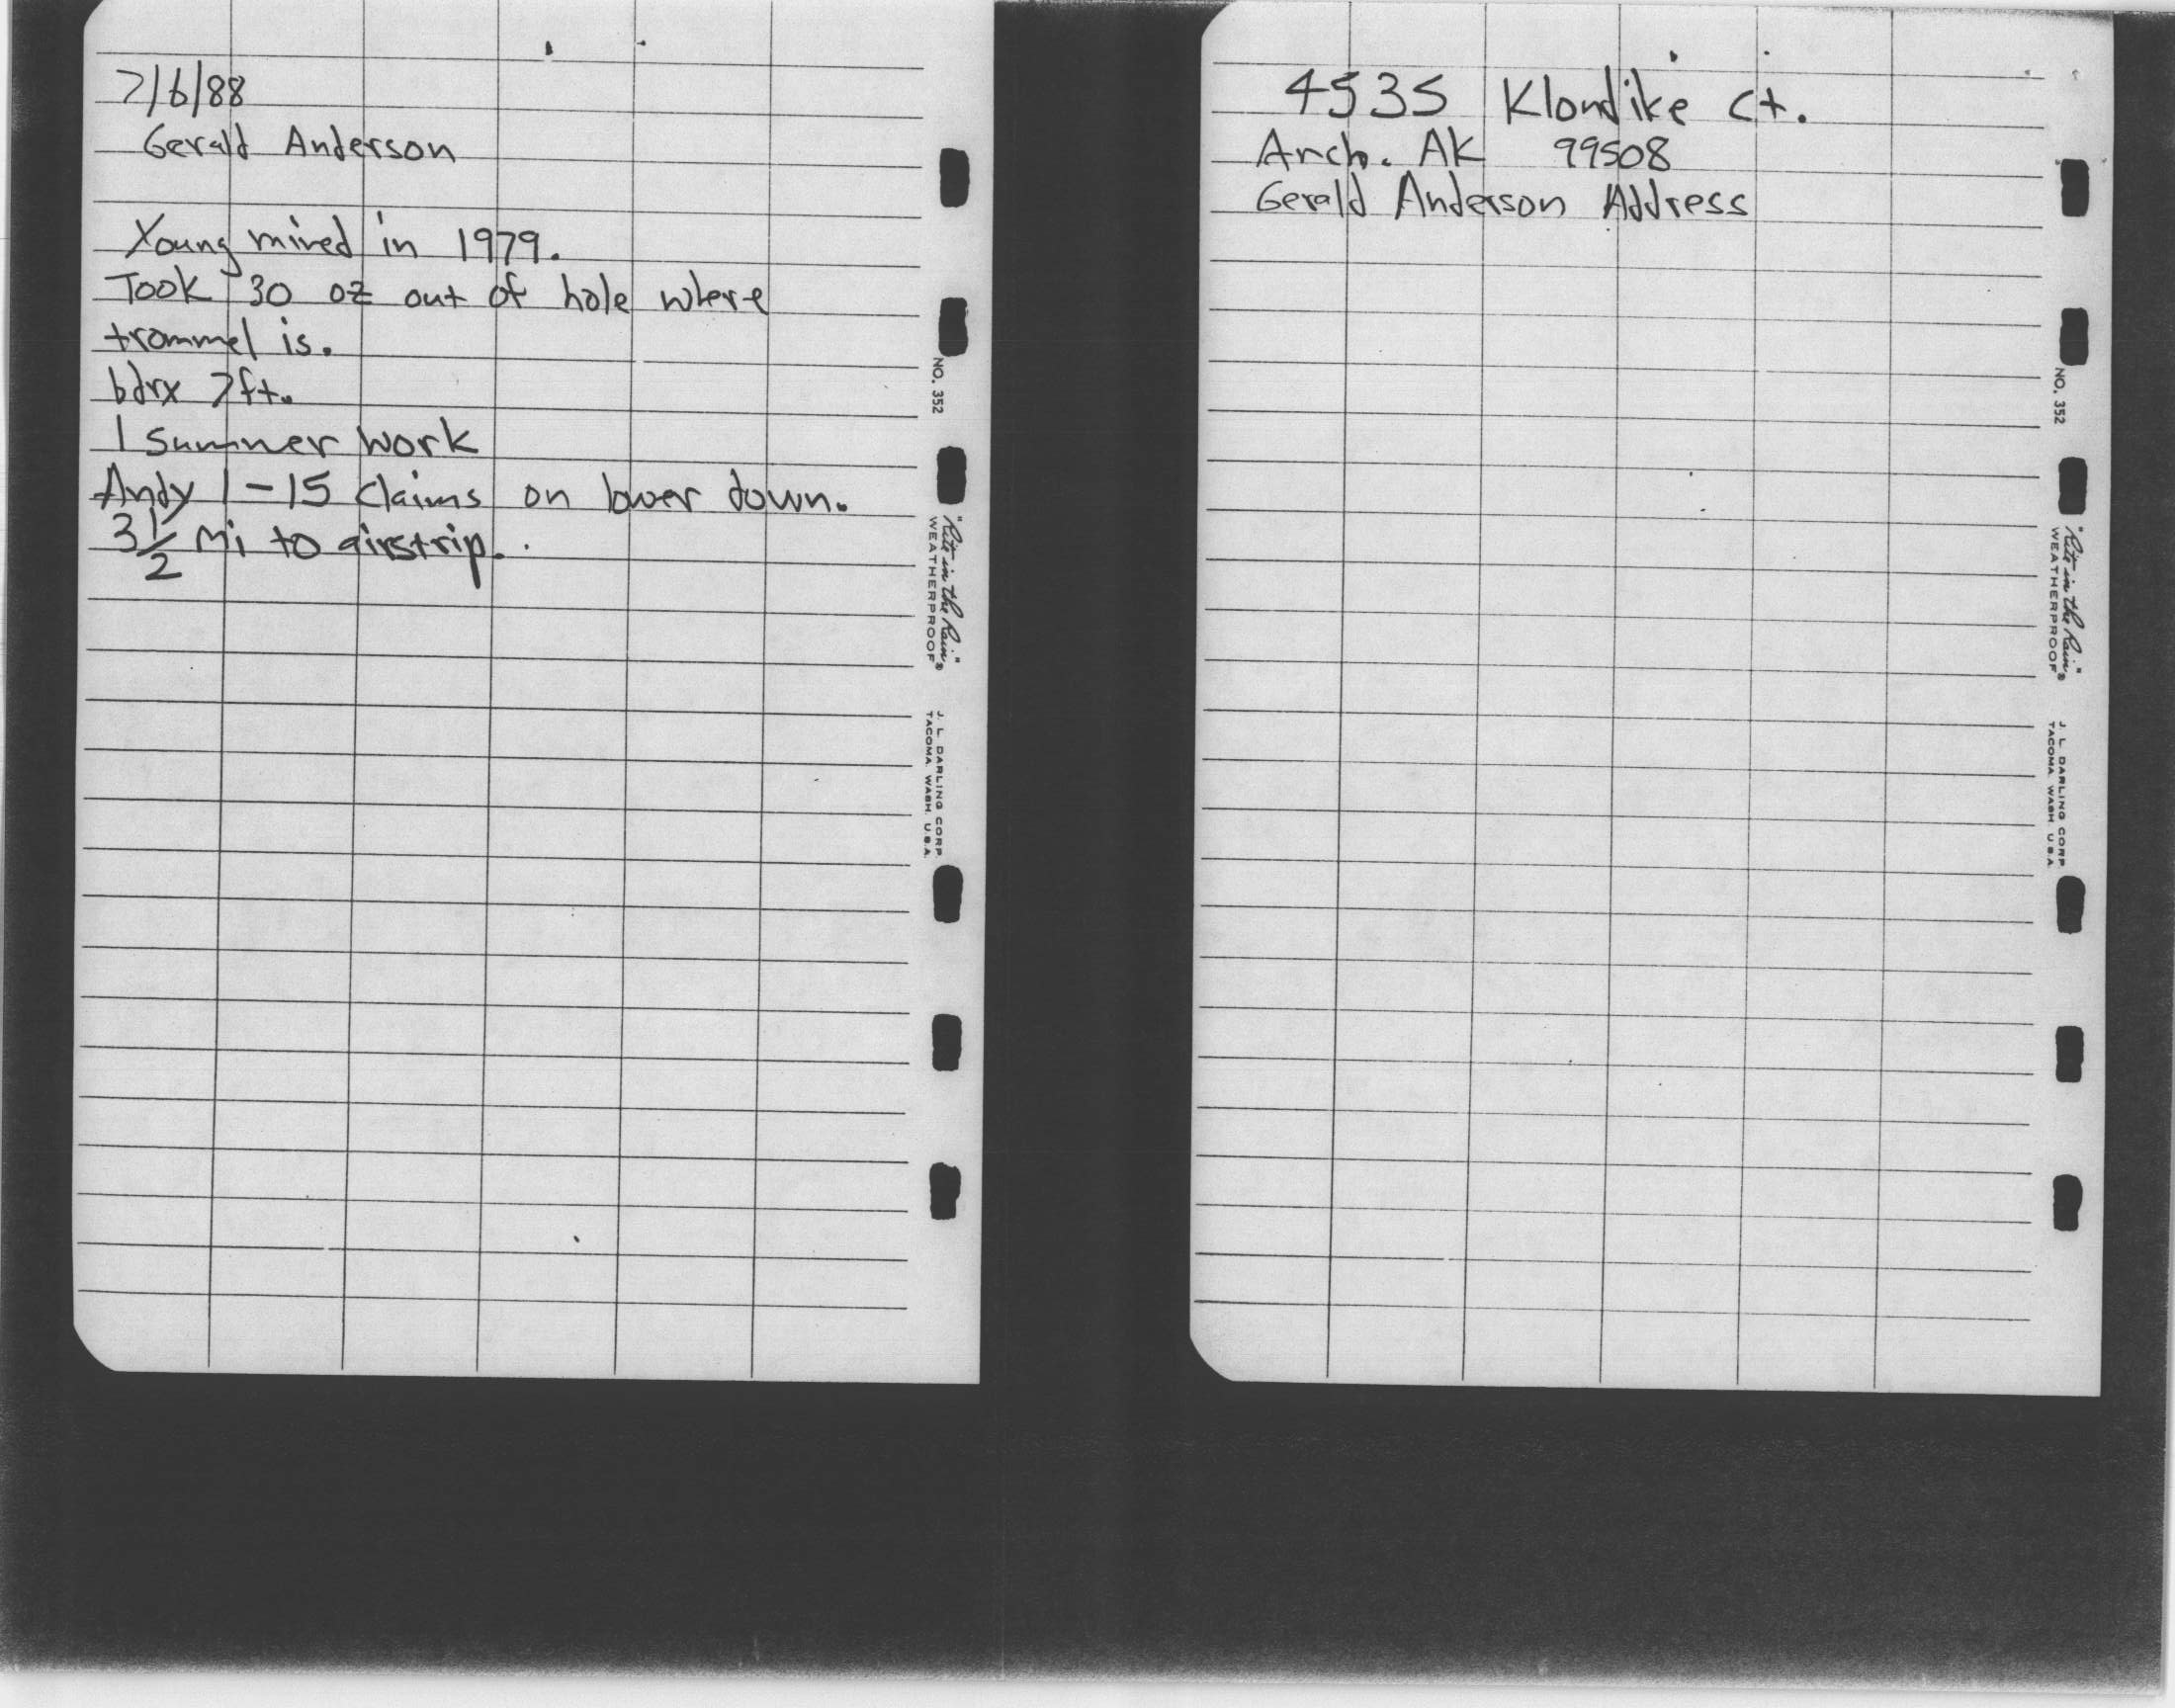 7/6/88
Gerald Anderson
Young mined in 1979.
Took 30 oz out of hole where
trommel is.
bdrx 7ft.
1 Summer work
Andy 1-15 claims on lower down.
3 1/2 Mi to airstrip.
NO. 352
"Rite in the Rain"®
WEATHERPROOF
J. L. DARLING CORP.
TACOMA, WASH. U.S.A.
4535 Klondike Ct.
Anch. AK 99508
Gerald Anderson Address
NO. 352
"Rite in the Rain"®
WEATHERPROOF
J. L. DARLING CORP.
TACOMA, WASH. U.S.A.